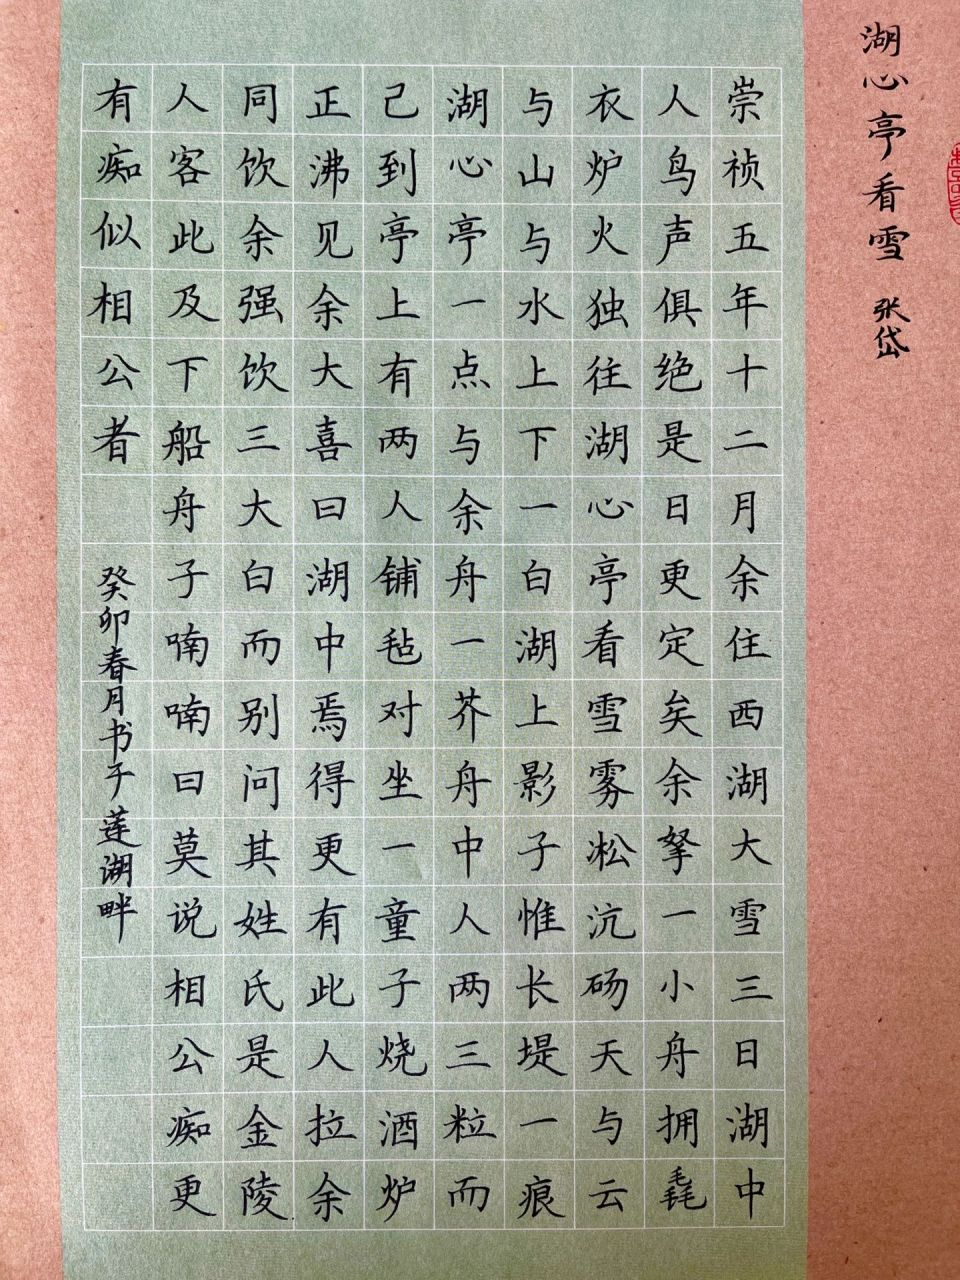 湖心亭看雪 张岱
崇祯五年十二月余住西湖大雪三日湖中
人鸟声俱绝是日更定矣余拏一小舟拥毳
衣炉火独往湖心亭看雪雾凇沆砀天与云
与山与水上下一白湖上影子惟长堤一痕
湖心亭一点与余舟一芥舟中人两三粒而
己到亭上有两人铺毡对坐一童子烧酒炉
正沸见余大喜曰湖中焉得更有此人拉余
同饮余强饮三大白而别问其姓氏是金陵
人客此及下船舟子喃喃曰莫说相公痴更
有痴似相公者
癸卯春月书于莲湖畔